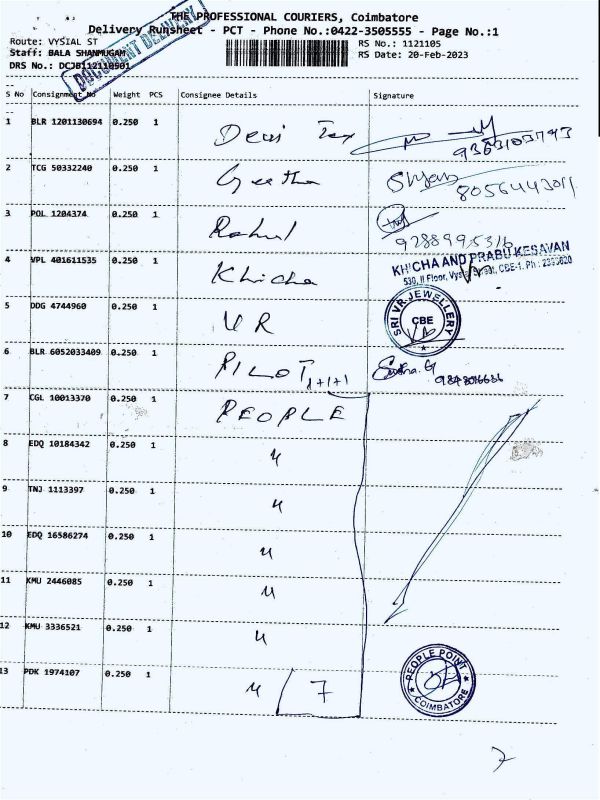 THE PROFESSIONAL COURIERS, Coimbatore
Delivery Runsheet - PCT - Phone No.:0422-3505555 - Page No.:1
Route: VYSIAL ST
RS No.: 1121105
Staff: BALA SHANMUGAM
RS Date: 20-Feb-2023
DRS No.:
DOCUMENT DELIVERY
S No Consignment No Weight PCS Consignee Details Signature
1 BLR 1201130694 0.250 1 Devi Tex
2 TCG 50332240 0.250 1 Geetha
3 POL 1204374 0.250 1 Rahul
9288995316
4 VPL 401611535 0.250 1 Khicha
KHICHA AND PRABU KESAVAN
530, II Floor, CBE-1. Ph:
5 DDG 4744960 0.250 1 VR
SRI VR JEWELLERY
CBE
6 BLR 6052033409 0.250 1 PILOT 1+1+1
7 CGL 10013370 0.250 1 PEOPLE
8 EDQ 10184342 0.250 1 "
9 TNJ 1113397 0.250 1 "
10 EDQ 16586274 0.250 1 "
11 KMU 2446085 0.250 1 "
12 KMU 3336521 0.250 1 "
13 PDK 1974107 0.250 1 " 7
PEOPLE POINT
COIMBATORE
7